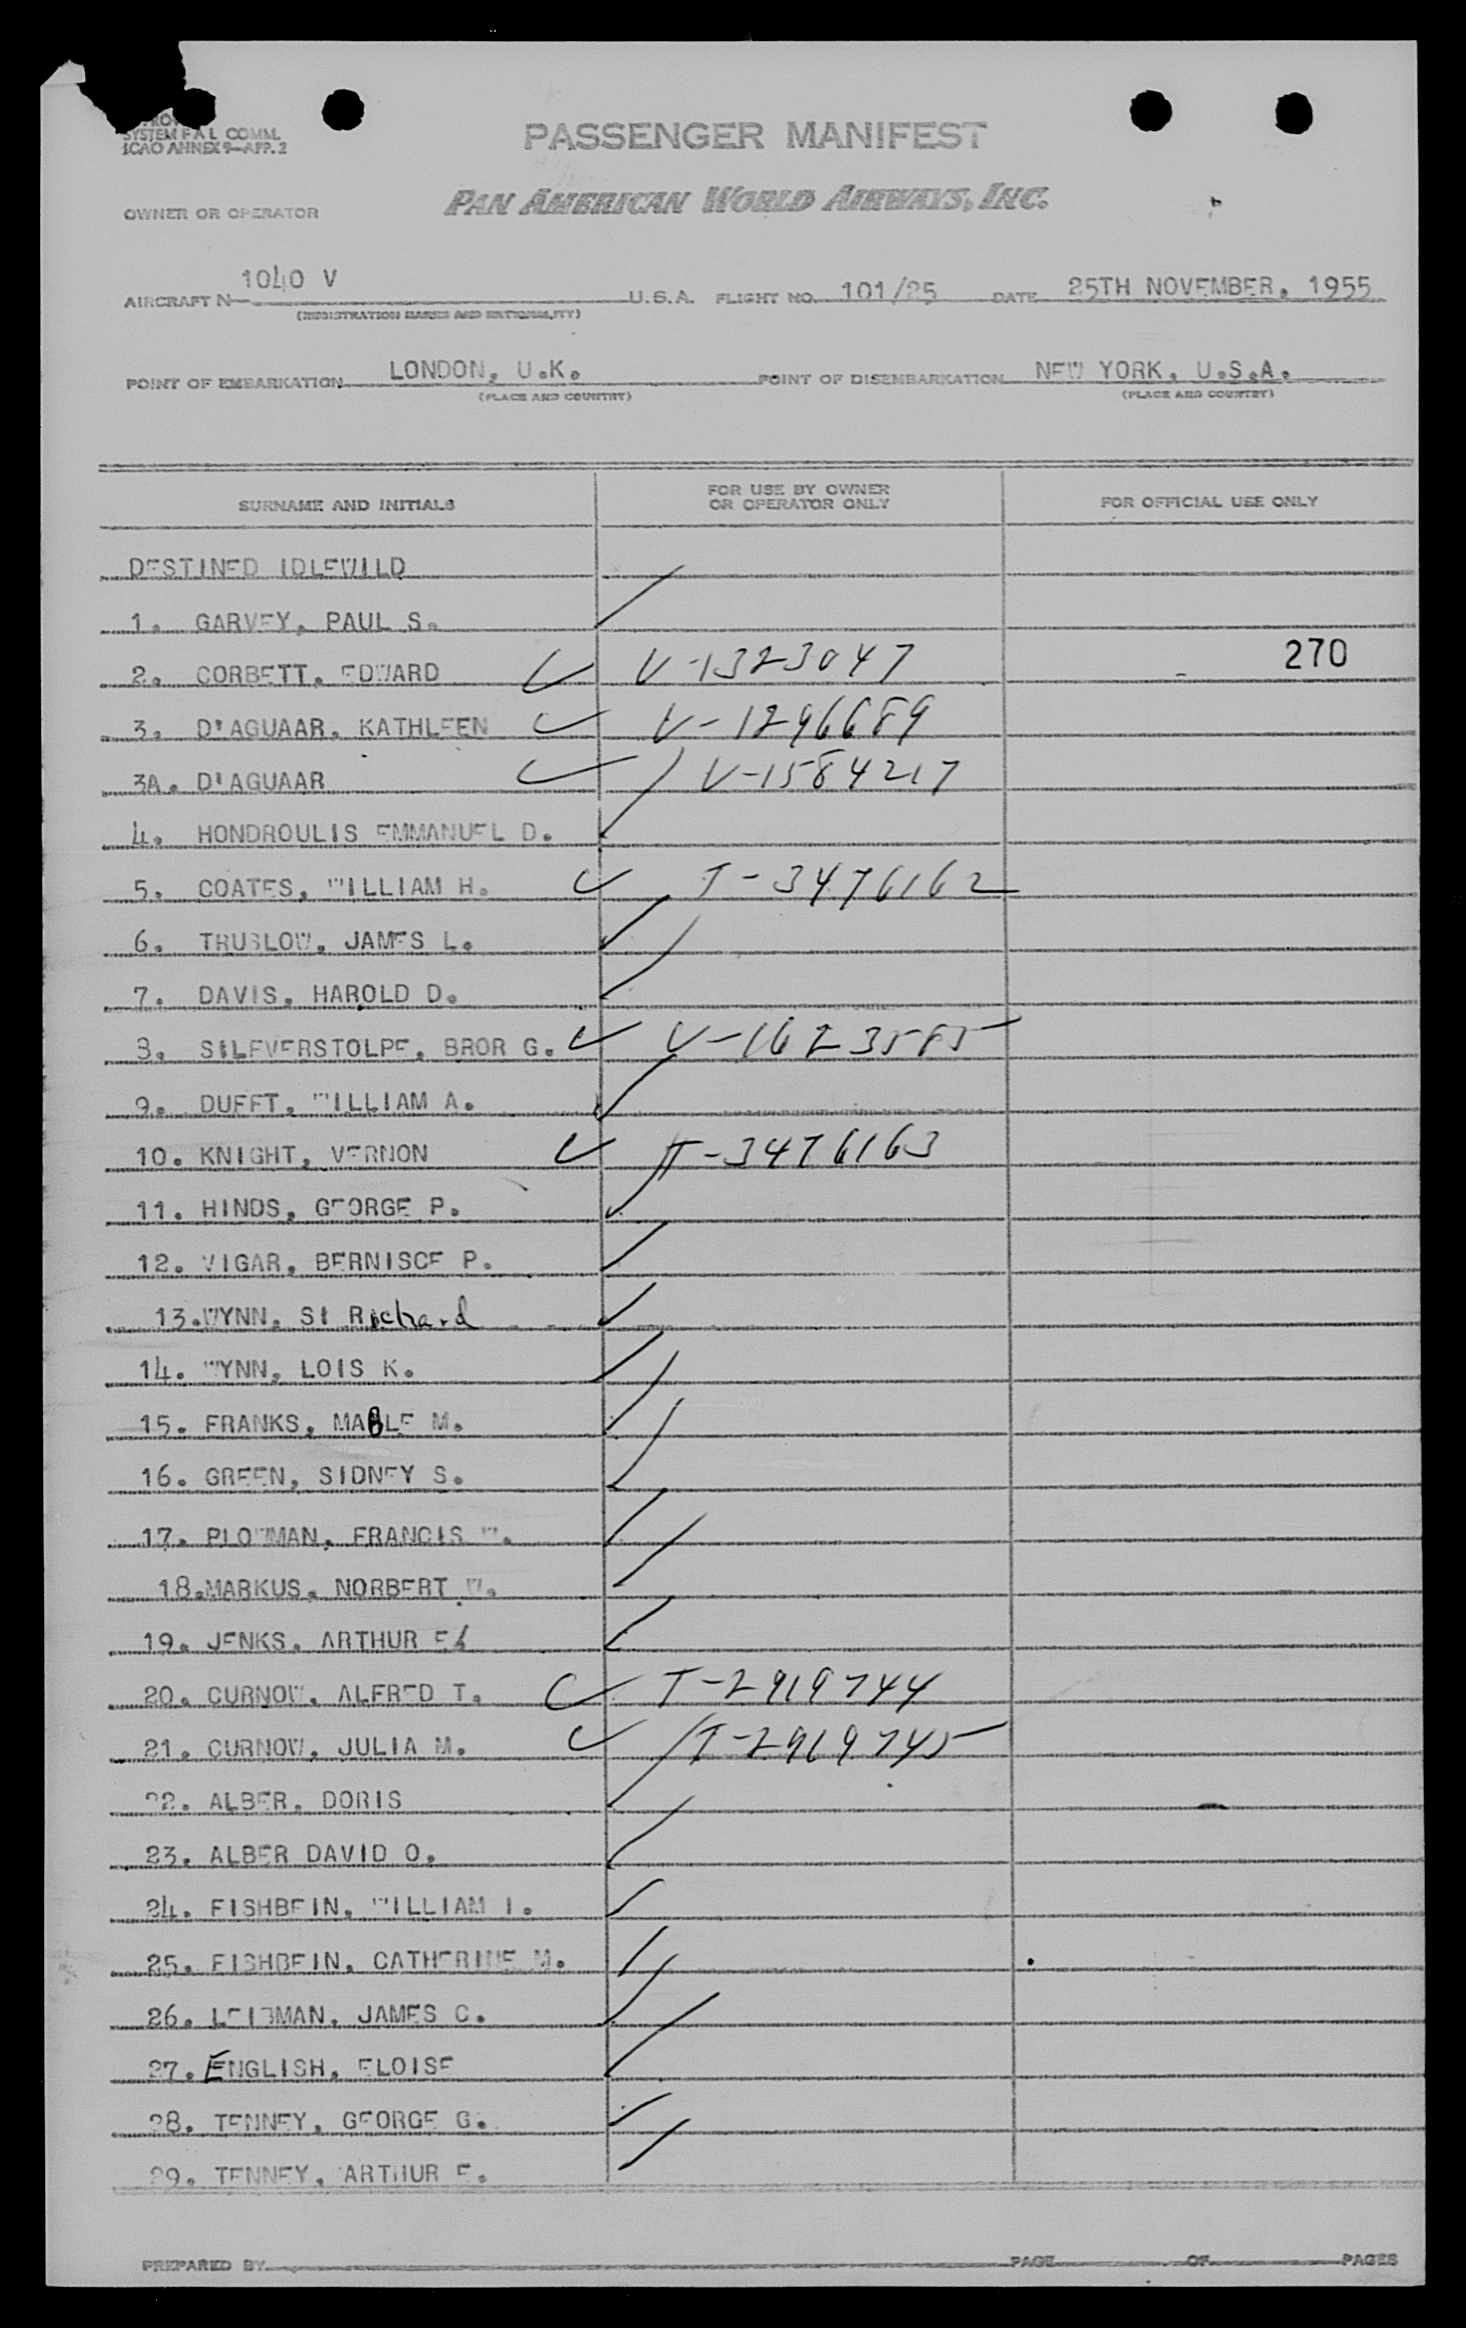 SYSTEM F A L COMM.
ICAO ANNEX 9—APP. 2
PASSENGER MANIFEST
OWNER OR OPERATOR
PAN AMERICAN WORLD AIRWAYS, INC.
AIRCRAFT N 1040 V U.S.A. FLIGHT NO. 101/25 DATE 25TH NOVEMBER, 1955
(REGISTRATION MARKS AND NATIONALITY)
POINT OF EMBARKATION LONDON, U.K. POINT OF DISEMBARKATION NEW YORK, U.S.A.
(PLACE AND COUNTRY) (PLACE AND COUNTRY)
SURNAME AND INITIALS FOR USE BY OWNER OR OPERATOR ONLY FOR OFFICIAL USE ONLY
DESTINED IDLEWILD
1. GARVEY, PAUL S.
2. CORBETT, EDWARD V-1323047 270
3. D'AGUAAR, KATHLEEN V-1296689
3A. D'AGUAAR V-1584217
4. HONDROULIS EMMANUEL D.
5. COATES, WILLIAM H. T-3476162
6. TRUSLOW, JAMES L.
7. DAVIS, HAROLD D.
8. SILFVERSTOLPE, BROR G. V-1623585
9. DUFFT, WILLIAM A.
10. KNIGHT, VERNON T-3476163
11. HINDS, GEORGE P.
12. VIGAR, BERNISCE P.
13. WYNN, SI Richard
14. WYNN, LOIS K.
15. FRANKS, MABLE M.
16. GREEN, SIDNEY S.
17. PLOWMAN, FRANCIS W.
18. MARKUS, NORBERT W.
19. JENKS, ARTHUR E.
20. CURNOW, ALFRED T. T-2919744
21. CURNOW, JULIA M. T-2919745
22. ALBER, DORIS
23. ALBER DAVID O.
24. FISHBEIN, WILLIAM I.
25. FISHBEIN, CATHERINE M.
26. LEIBMAN, JAMES C.
27. ENGLISH, ELOISE
28. TENNEY, GEORGE G.
29. TENNEY, ARTHUR E.
PREPARED BY PAGE OF PAGES